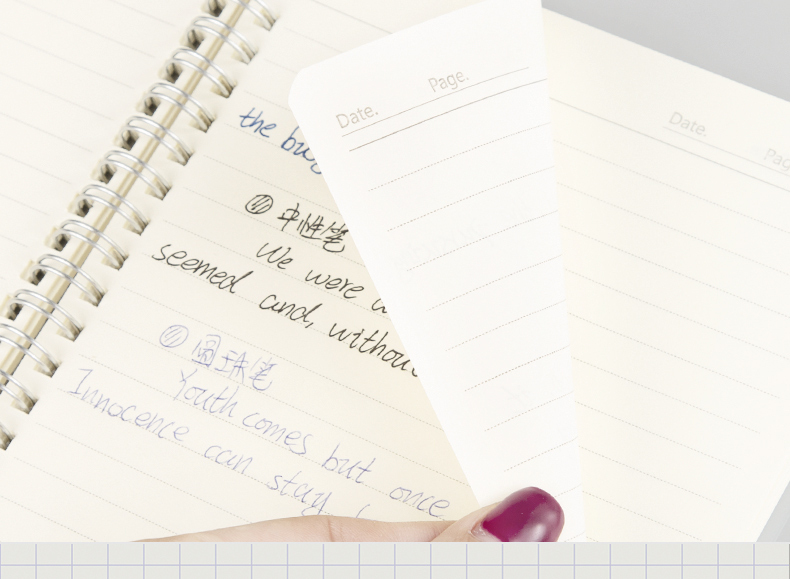 the
中性笔
We were
seemed and, without
圆珠笔
Youth comes but once
Innocence can stay
Date. Page.
Date.